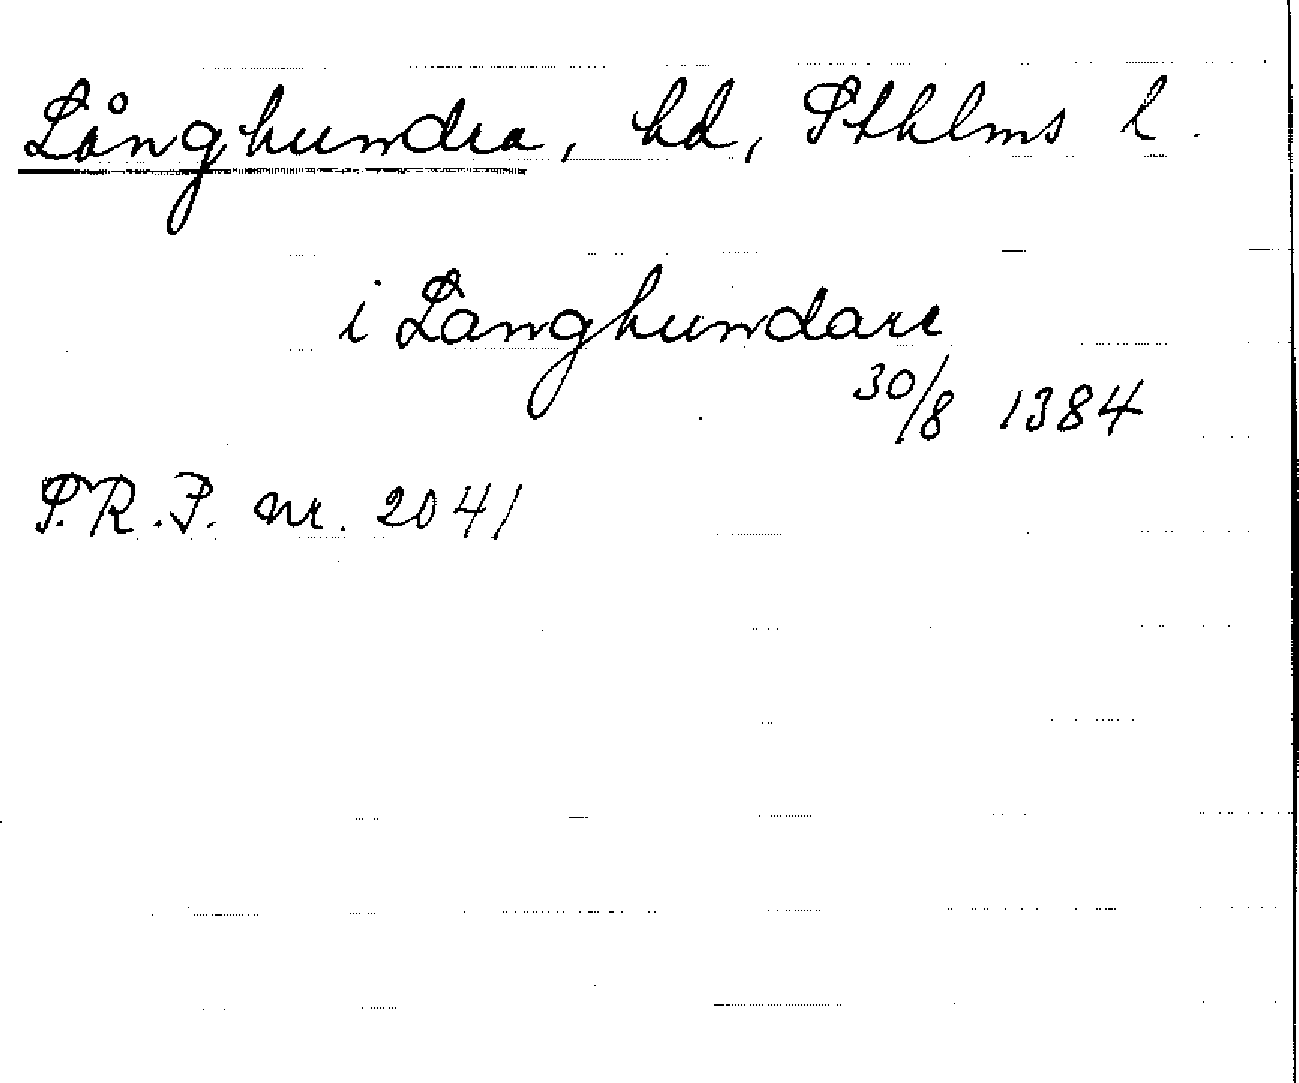 Långhundra, hd, Sthlms l.
i Langhundare
30/8 1384
S.R.P. nr. 2041